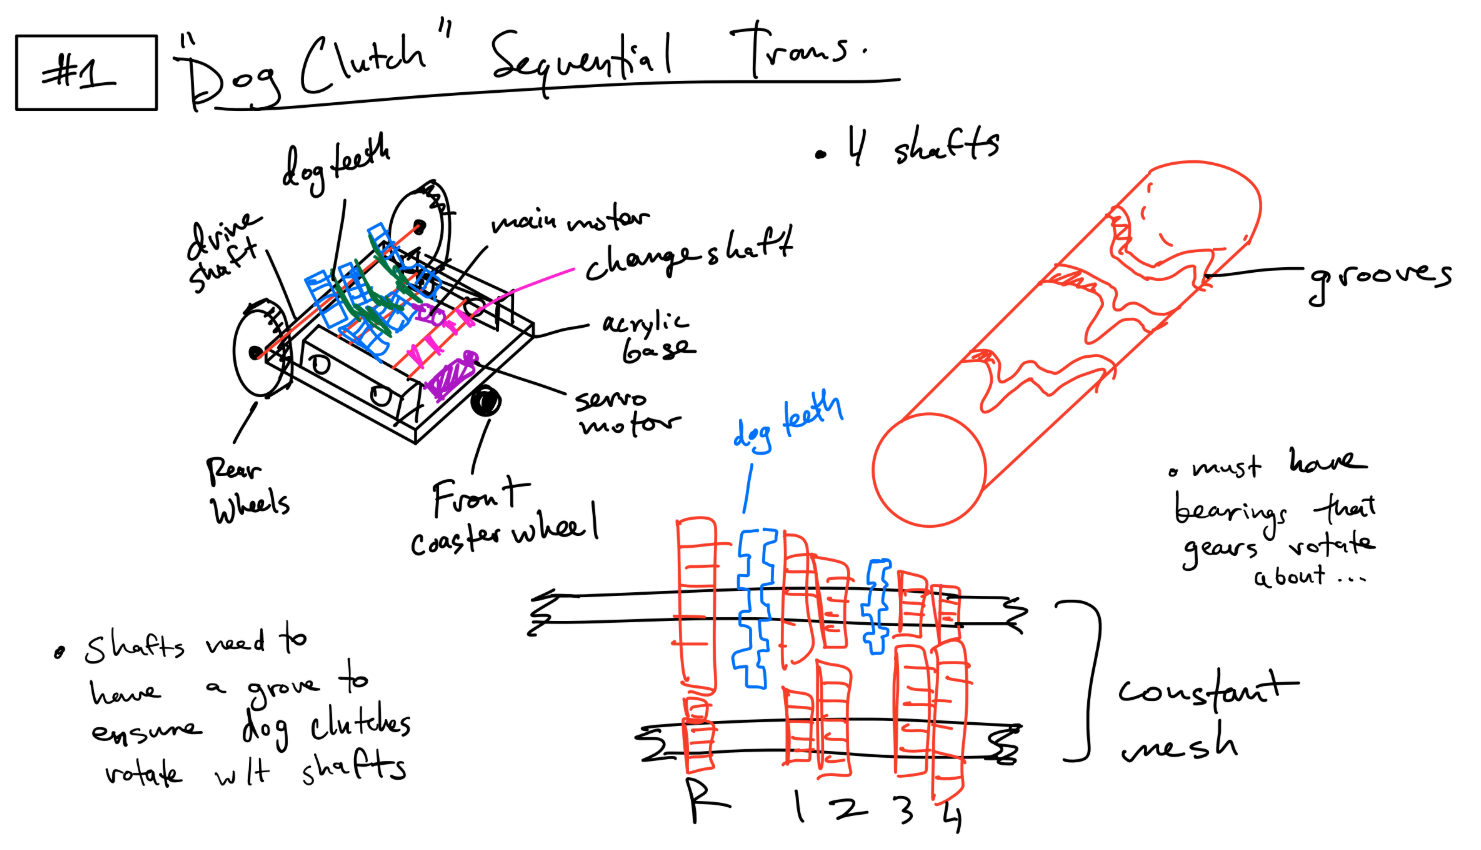 #1
"Dog Clutch" Sequential Trans.
• 4 shafts
dog teeth
drive
shaft
main motor
change shaft
acrylic
base
servo
motor
Rear
Wheels
Front
coaster wheel
grooves
dog teeth
• must have
bearings that
gears rotate
about...
• Shafts need to
have a grove to
ensure dog clutches
rotate w/t shafts
constant
mesh
R 1 2 3 4